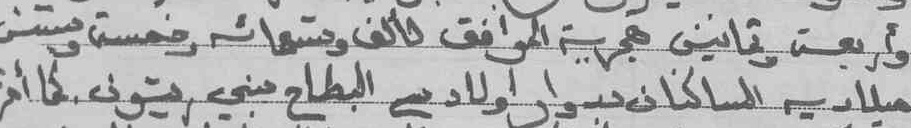 وأربعة وثمانين هجرية الموافق لألف وتسعمائه وخمسة وستين
ميلاديه الساكنان بدوار أولاد سي البطاح ببني يتون كما أقر